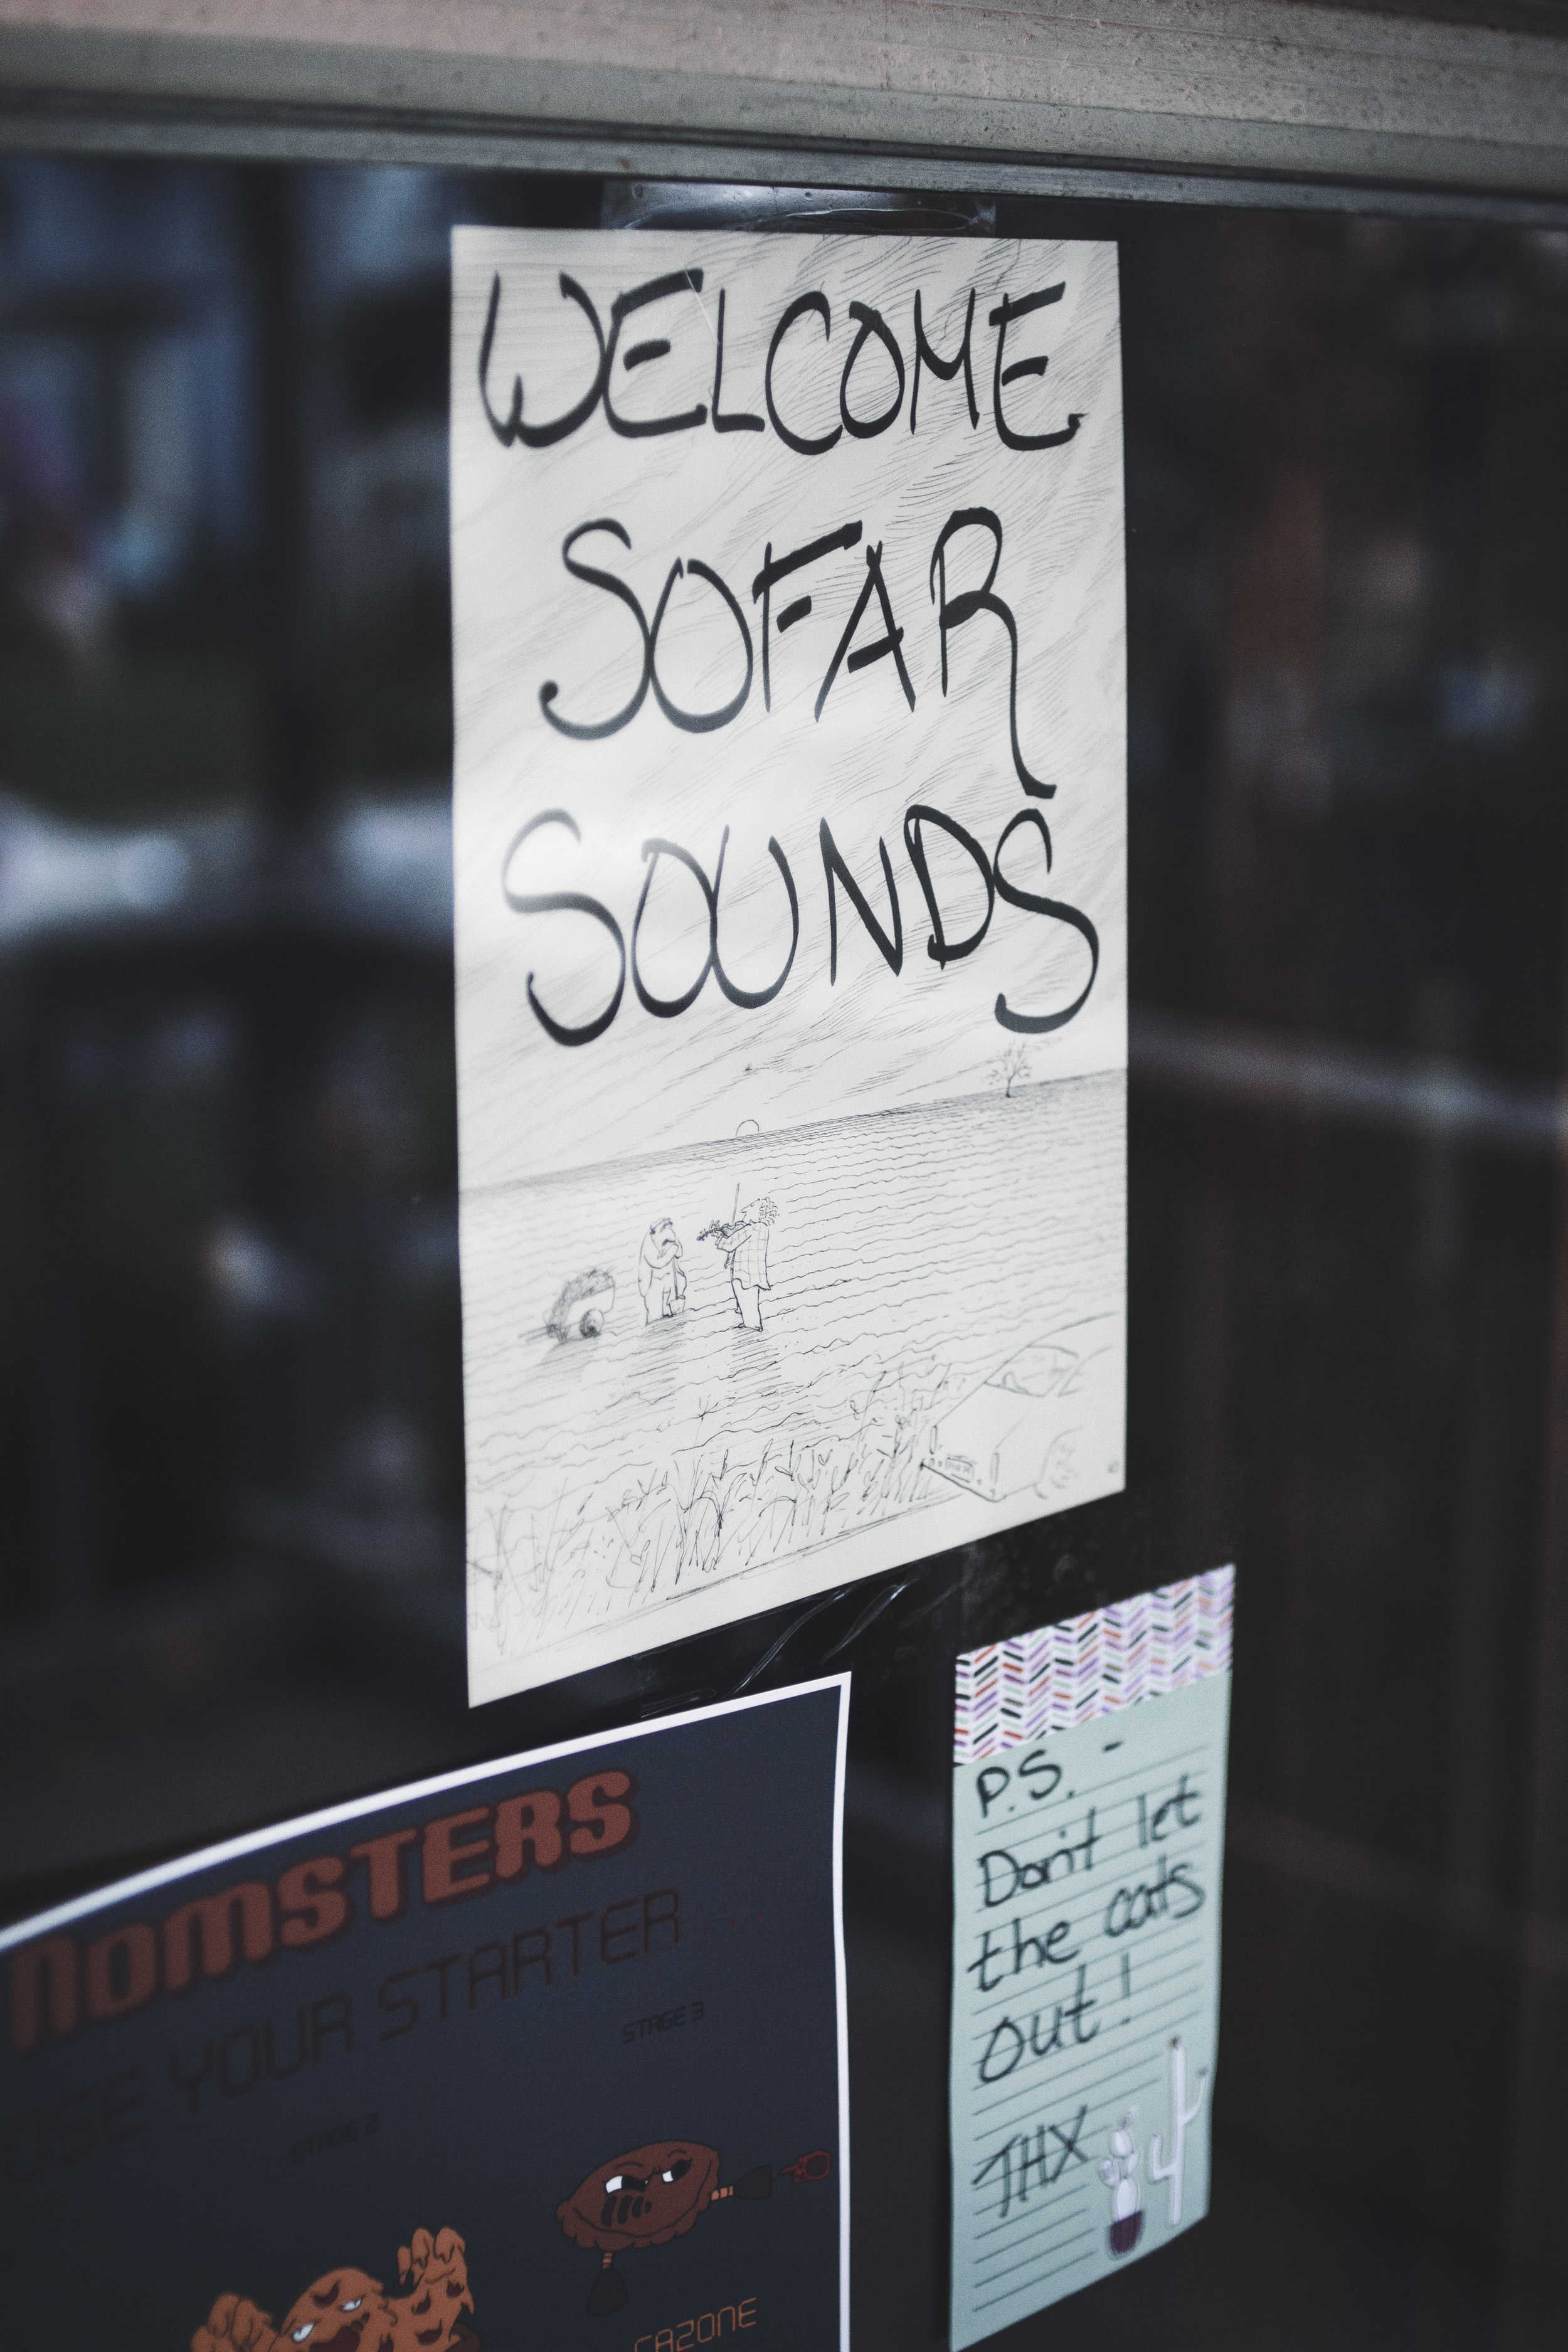 WELCOME
SOFAR
SOUNDS
NOMSTERS
OSE YOUR STARTER...
STAGE 3
STAGE 2
CAZONE
P.S. -
Don't let
the cats
out!
THX